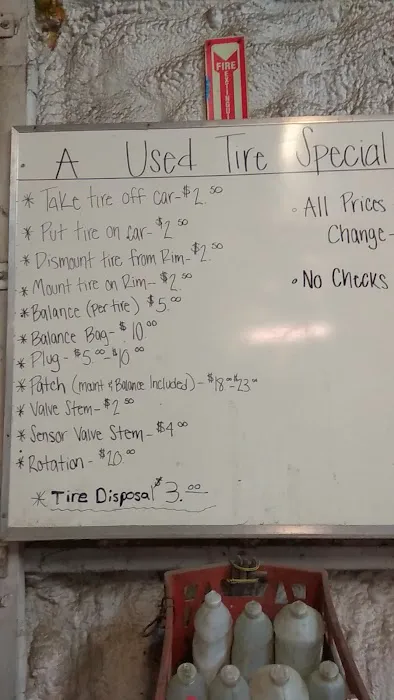 FIRE
EXTINGUI
A Used Tire Special
* Take tire off car-$2.50
* Put tire on car-$2.50
* Dismount tire from Rim-$2.50
* Mount tire on Rim-$2.50
* Balance (per tire) $5.00
* Balance Bag-$10.00
* Plug-$5.00-$10.00
* Patch (mount & Balance Included)-$18.00-$23.00
* Valve Stem-$2.50
* Sensor Valve Stem-$4.00
* Rotation-$20.00
* Tire Disposal $3.00
• All Prices
Change-
• No Checks